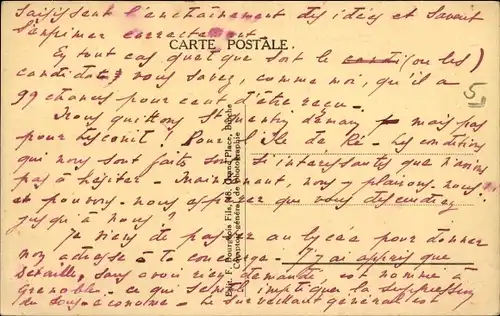 saisissent l'enchaînement des idées et savent
s'exprimer correctement.
CARTE POSTALE.
En tout cas quel que soit le candi (ou les)
candidats vous savez, comme moi, qu'il a
99 chances pour cent d'être reçu.
5
Nous quittons St Quentin demain mais pas
pour Lesconil! Pour l'Ile de Ré. Les conditions
qui nous sont faites sont si intéressantes que
pas à hésiter. Maintenant, nous y plairons-nous
et pouvons-nous que vous descendiez
jusqu'à nous?
Je viens de passer au lycée pour donner
mon adresse à la concierge. J'y ai appris que
Detaille, sans avoir rien demandé est nommé à
Grenoble. ce qui semble impliquer la suppression
du sous-économe. Le surveillant général est
Edit. F. Bourgeois Fils, 48, Grand'Place,
Comptoir général de photographie